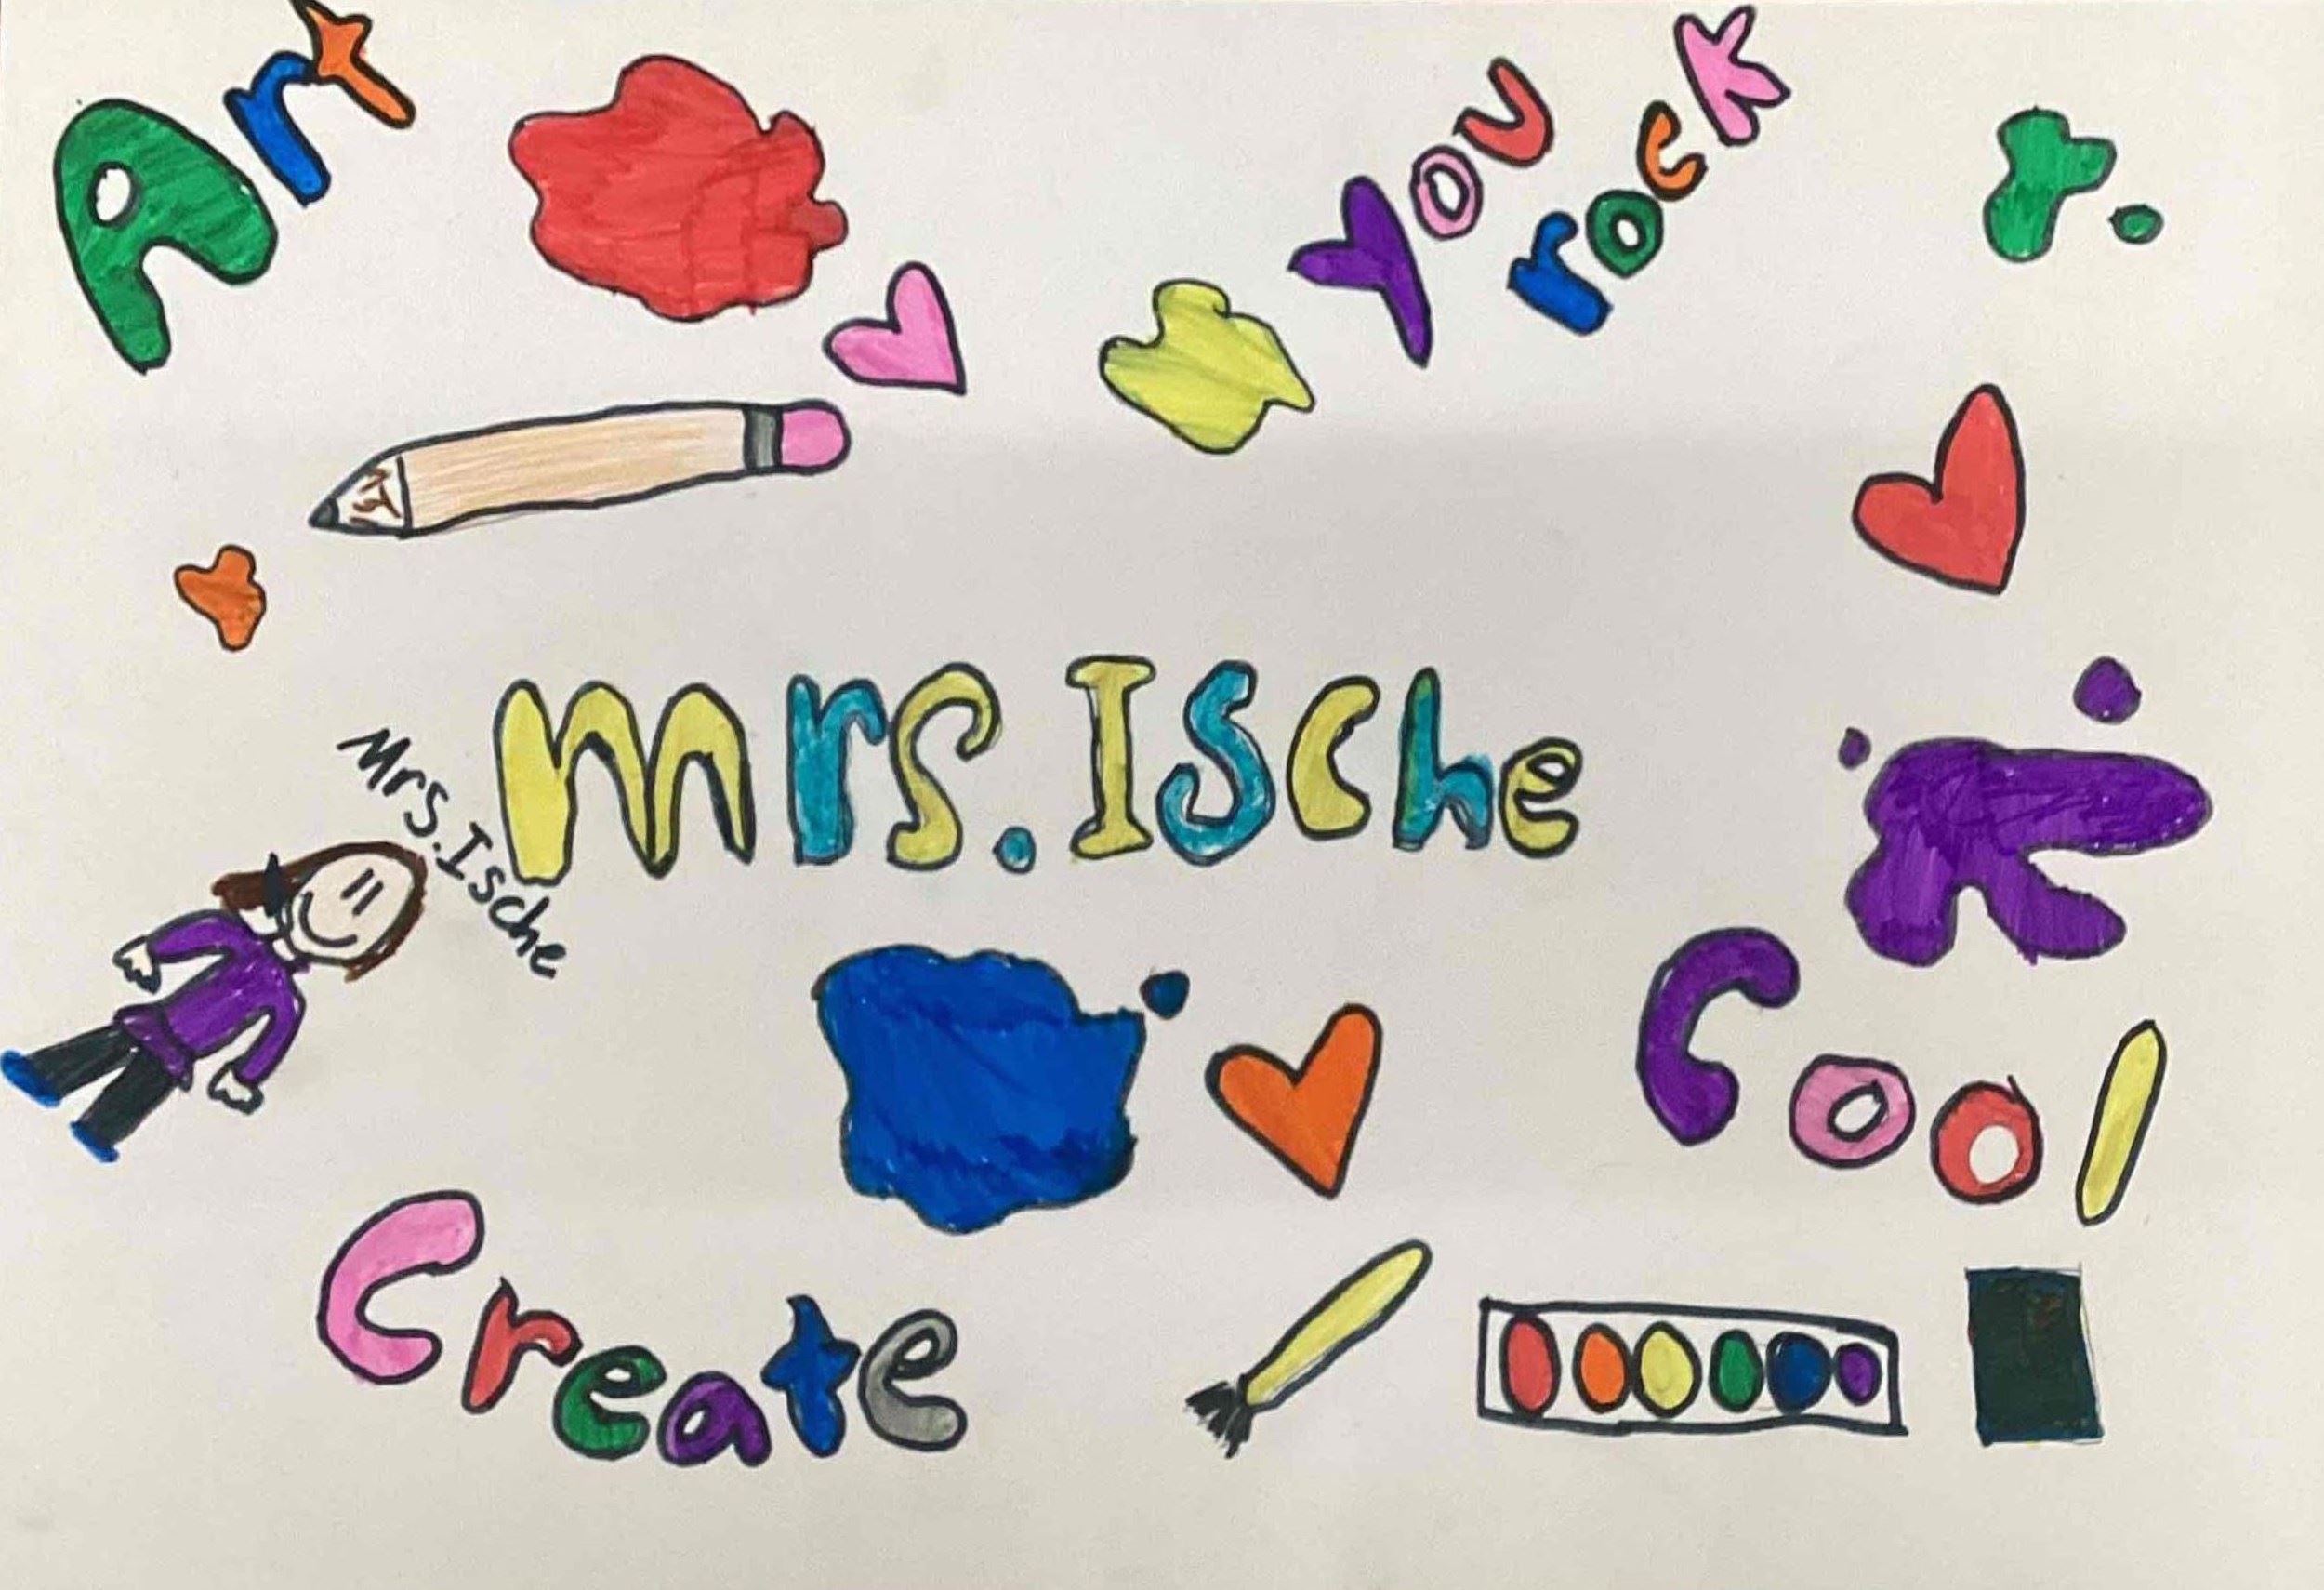 Art
you
rock
mrs. Ische
Mrs. Ische
Cool
Create